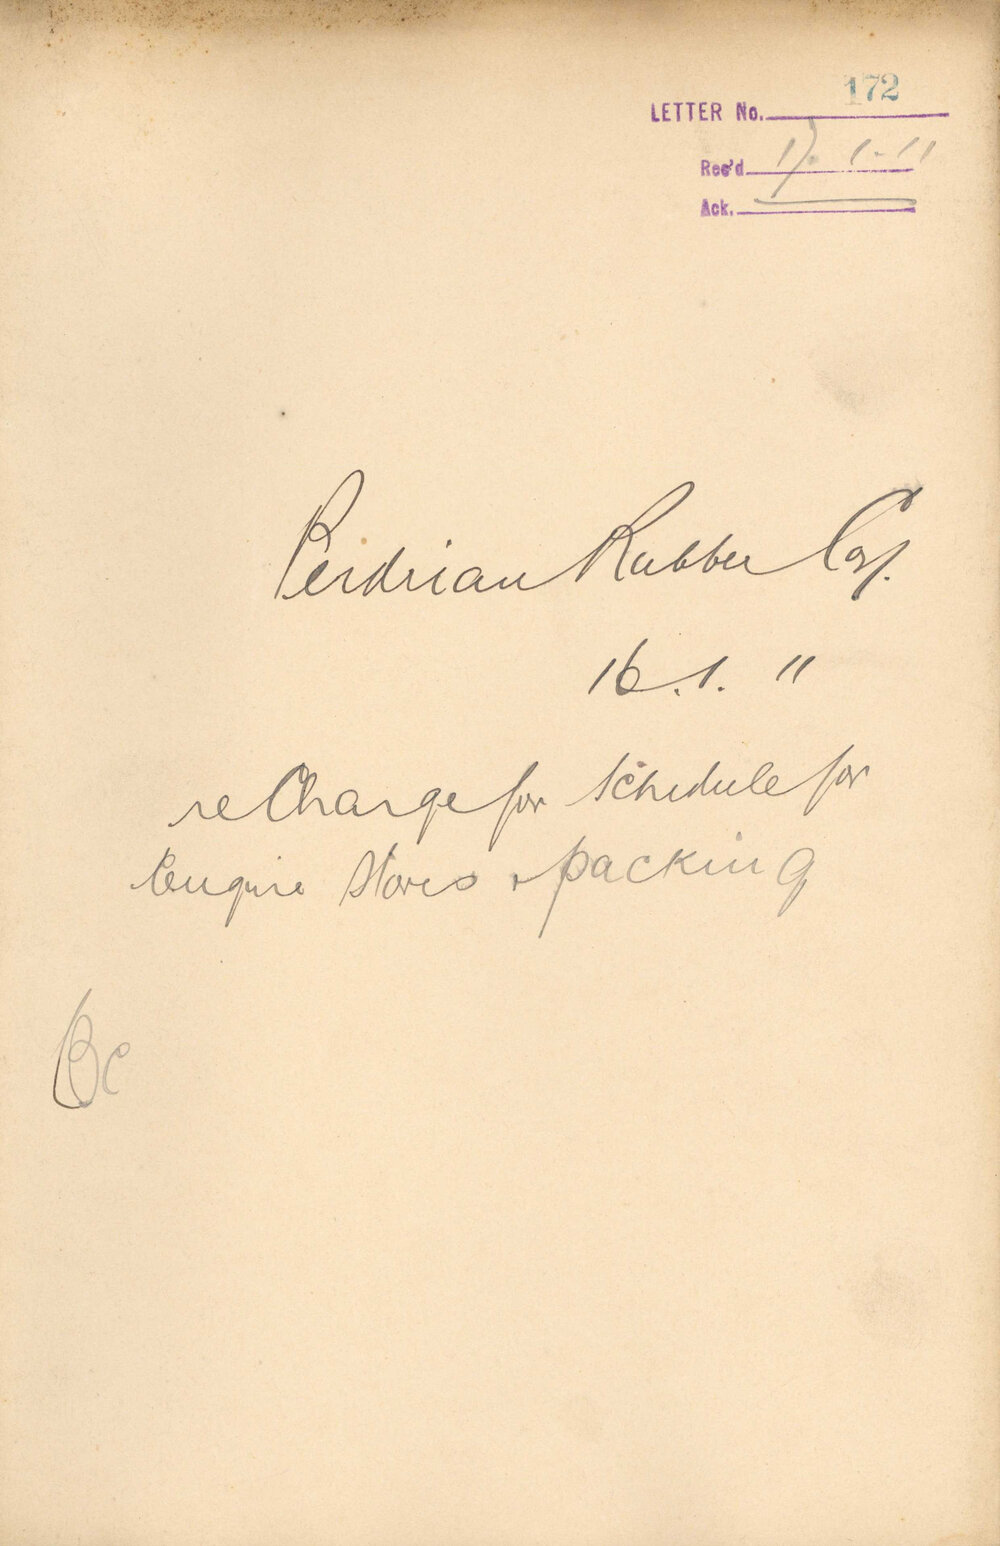 172
LETTER No.
Rec'd 17.1.11
Ack.
Perdriau Rubber Coy.
16.1.11
re Charge for Schedule for
Engine Stores & packing